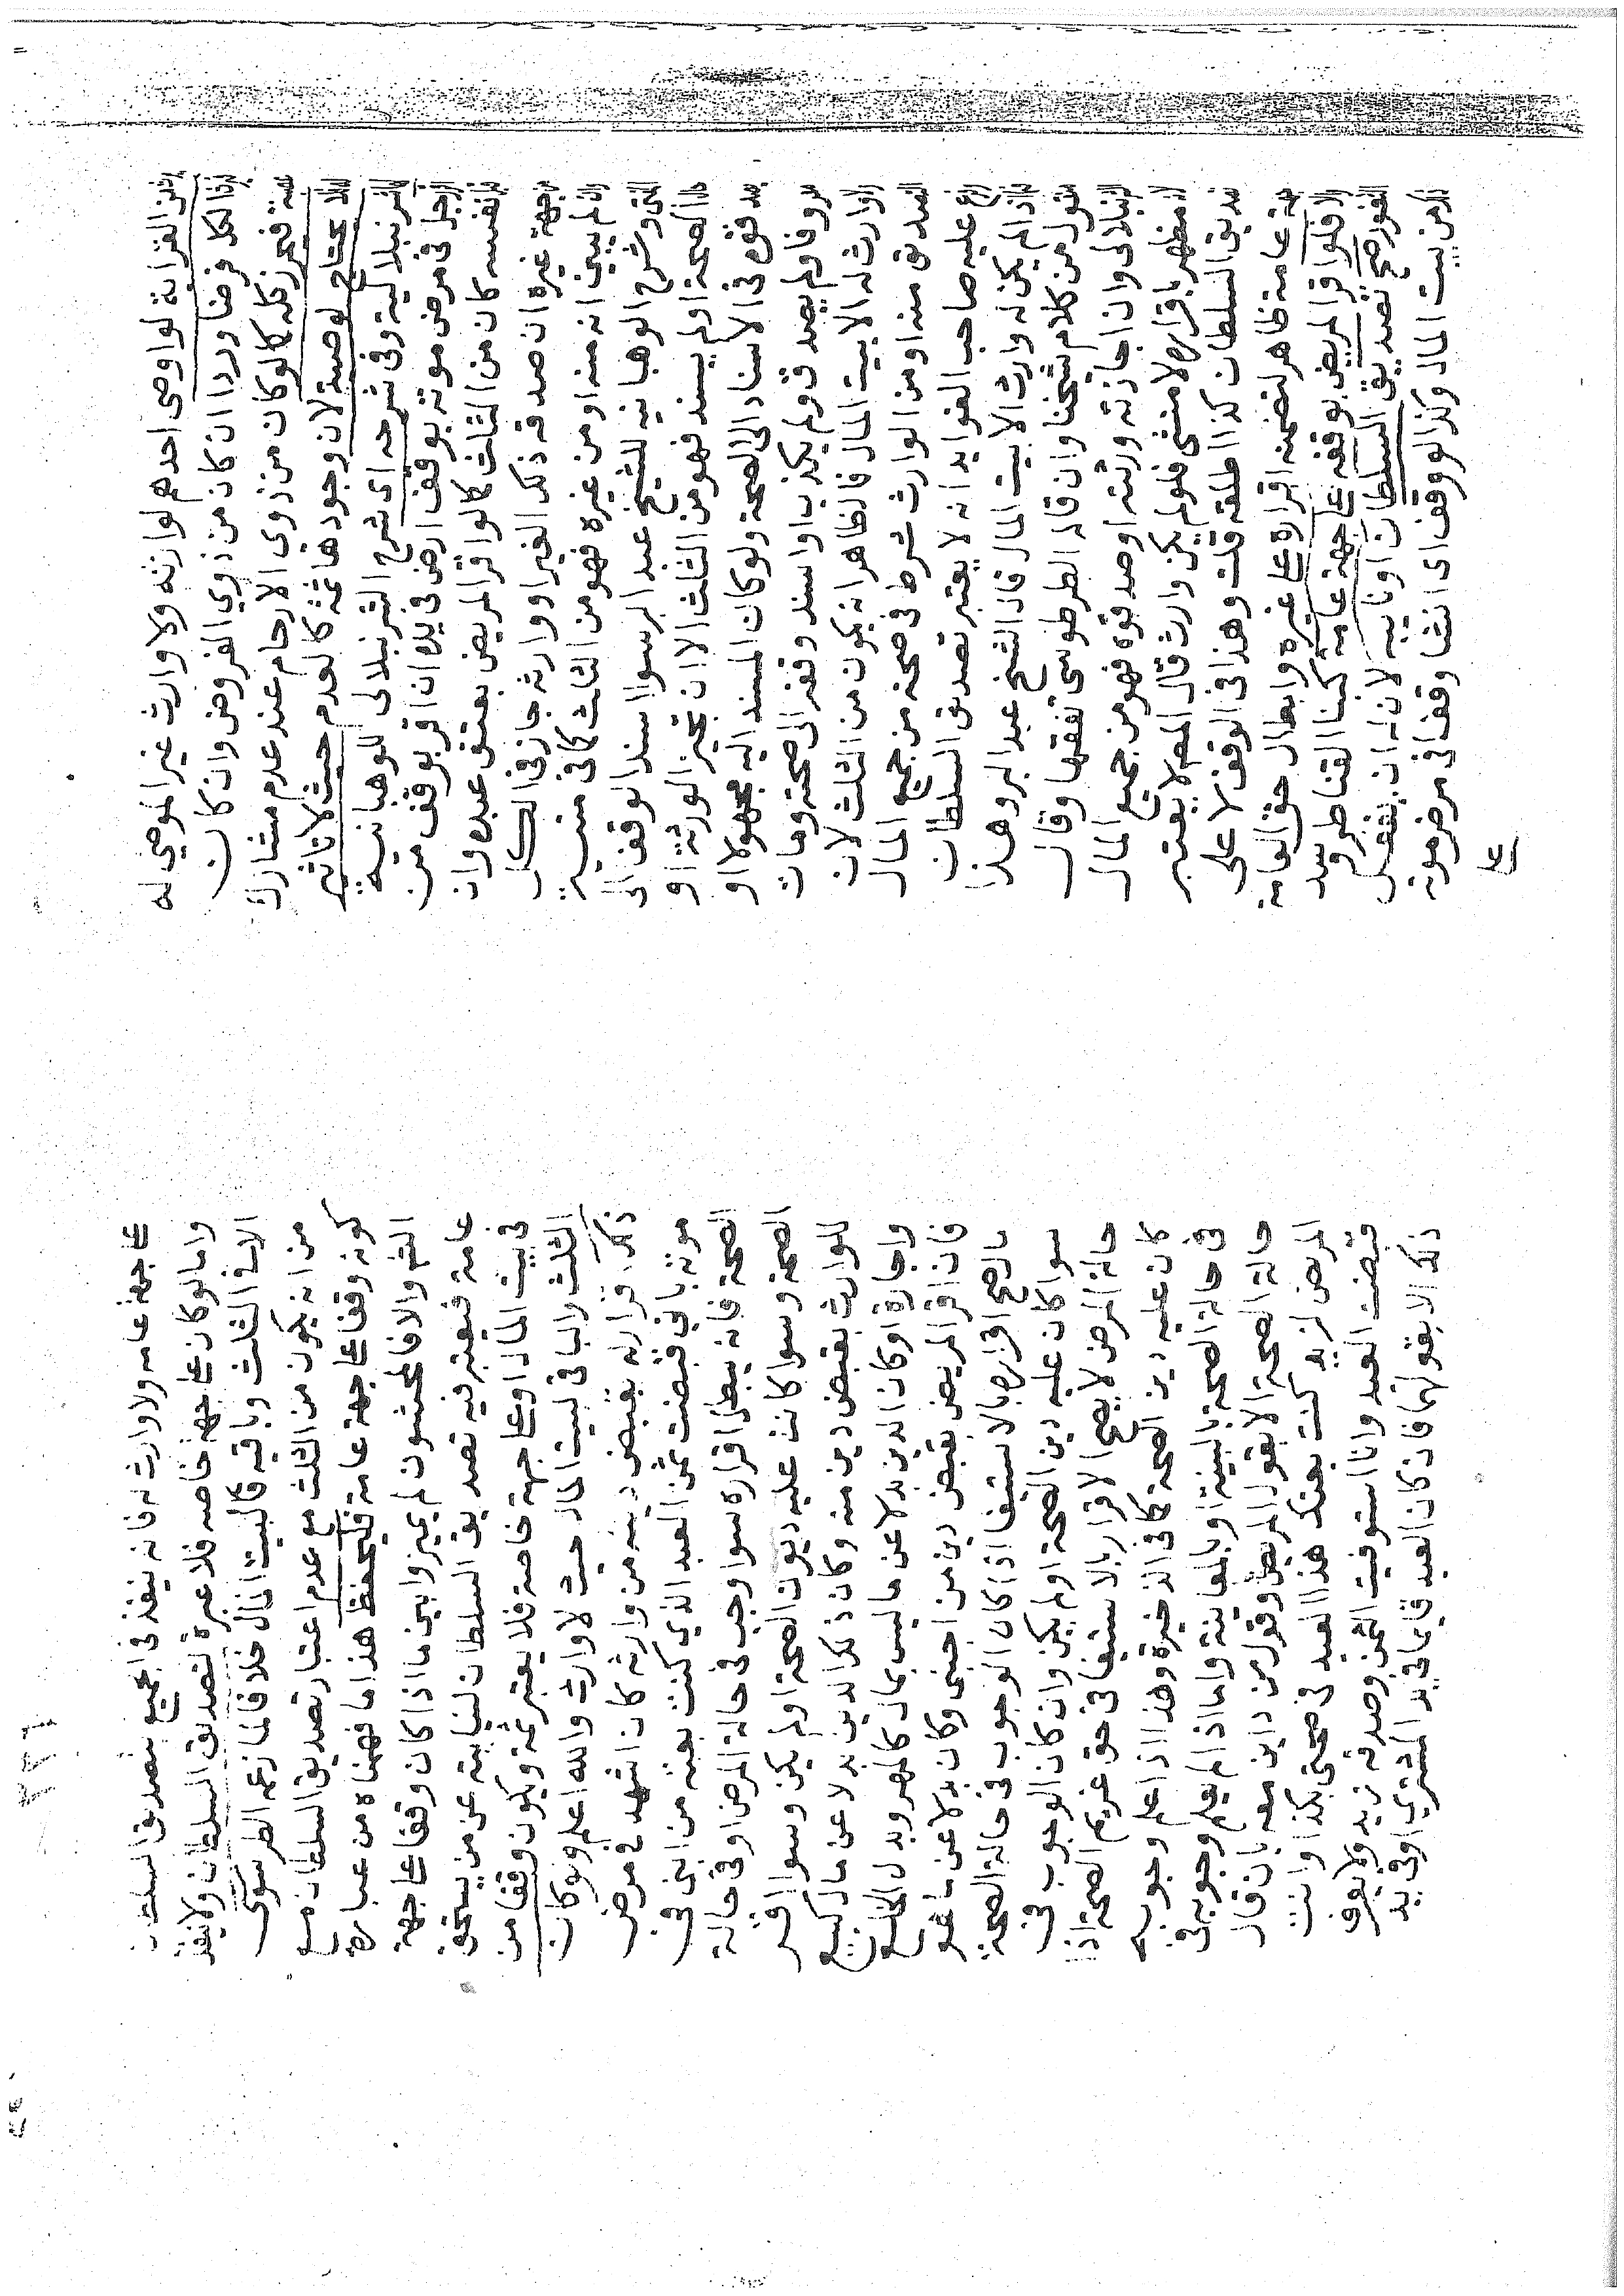 الخزانة لو اوصى احدهم لوارثه ولا وارث غير الموصى له
الكل فرضا وردا ان كان من ذوي الفروض وان كان
فيحرز كله كالوكان من ذوي الارحام عند عدم مشارك
يحتاج لوصية لان وجودها ثمة كالعدم حيث لا تاثير
الشرنبلالية وفي شرحه اى شرح الشرنبلالى للوهبانية
رجل فى مرض موته بوقف ارض فى يده ان اقر بوقف من
نفسه كان من الثلث كالو اقر المريض بعتق عبده وان
جهة غيره ان صدقه ذلك الغير او وارثه جاز فى الكل
لم يبين انه منه او من غيره فهو من الثلث كا فى منية
وشرح الوهبانيه للشيخ عبد البر سوا اسند الوقف الى
الصحة اولم يسند فهو من الثلث الا ان تجيز الورثة او
فى الاسناد الى الصحة ولو كان المسند اليه مجهولا او
فا ولم يصدق ولم يكذب او اسند وقفه الى صحته ومات
وارث له الا بيت المال فالظاهر انه يكون من الثلث لان
التصديق منه او من الوارث شرط فى صحته من جميع المال
عليه صاحب الفوايد انه لا يعتبر تصديق السلطان
اذا لم يكن له وارث الا بيت المال قال الشيخ عبد البر وهذا
من كلام شيخنا وان قاله الطرطوسى تفقها وقال
الشرنبلالى وان اجازته ورثته او صدقوه فهو من جميع المال
مظهر باقراره لا منشئ فلو لم يكن وارث قال المص لا يعتبر
تصديق السلطان كذا اطلقه قلت وهذا فى الوقف لا على
جهة عامة ظاهر لتضمنه اقراره على غيره وابطال حق العامة
فلو اقر المريض بوقفه على جهة عامة كبنا القناطر وسد
الثغور صح تصديق السلطان او نايبه لان له ان يفعل
من بيت المال وكذا لو وقف اى انشا وقفا فى مرض موته
على
على جهة عامه ولا وارث له فانه ينفذ فى الجميع بتصديق السلطان
واما لو كان على جهة خاصه فلا عبرة لتصديق السلطان ولا ينفذ
الا فى الثلث وباقيه لبيت المال خلافا لما زعمه الطرسوسى
من انه يكون من الثلث مع عدم اعتبار تصديق السلطان مع
كونه وقفا على جهة عامة فليحفظ هذا ما فهمناه من عبارة
الشر والا فالمحشون لم يميزوا بين ما اذا كان وقفا على جهة
عامة فيعتبر فيه تصديق السلطان لنيابته عن من يستحق
فى بيت المال او على جهة خاصة فلا يعتبر ثمة ويكون وقفا من
الثلث والباقى لبيت المال حيث لا وارث والله اعلم ولو كان
ذكر، قراره بقبض دينه من وارثه كان اشهد فى مرض
موته بانى قبضت ثمن العبد الذي كنت بعته من ابنى فى
الصحة فانه يبطل اقراره سوا وجب فى حالة المرض او فى حالة
الصحة وسوا كانت عليه ديون الصحة اولم يكن وسوا اقر
للوارث بقبض دين منه وكان ذلك الدين بدلا عن مال كبيع
واجارة او كان الدين بدلا عن ما ليس بمال كالمهر وبدل الخلع
فان اقر المريض بقبض دين من اجنبى وكان بدلا عن ما هو
مال صح اقراره بالاستيفا اذا كان الوجوب فى حالة الصحة
سوا كان عليه دين الصحة اولم يكن وان كان الوجوب فى
حالة المرض لا يصح الاقرار بالاستيفا فى حق غريم الصحة اذا
كان عليه دين الصحة كا فى الذخيرة وهذا اذا علم وجوبه
فى حالة الصحة بالبينة او بالمعاينة واما اذا لم يعلم وجوبه فى
حالة الصحة الا بقول المريض وقول من داين معه بان قال
المريض لزيد كنت بعتك هذا العبد فى صحتى بكذا وانت
قبضت العبد وانا استوفيت الثمن وصدقه زيد ولا يعرف
ذلك الا بقولهما فان كان العبد قايما فى يد المشتري او فى يد